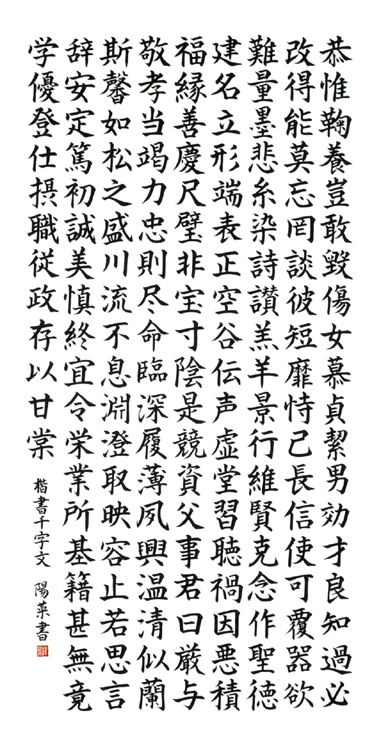 恭惟鞠養豈敢毀傷女慕貞絜男効才良知過必
改得能莫忘罔談彼短靡恃己長信使可覆器欲
難量墨悲糸染詩讃羔羊景行維賢克念作聖徳
建名立形端表正空谷伝声虚堂習聴禍因悪積
福縁善慶尺璧非宝寸陰是競資父事君曰厳与
敬孝当竭力忠則尽命臨深履薄夙興温清似蘭
斯馨如松之盛川流不息淵澄取映容止若思言
辞安定篤初誠美慎終宜令栄業所基籍甚無竟
学優登仕摂職従政存以甘棠
楷書千字文 陽菜書